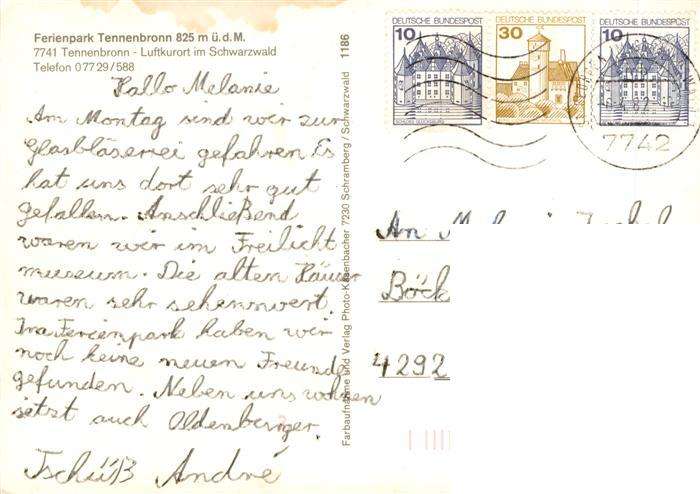 Ferienpark Tennenbronn 825 m ü.d.M.
7741 Tennenbronn - Luftkurort im Schwarzwald
Telefon 0 77 29 / 588
Hallo Melanie
Am Montag sind wir zur
Glasbläserei gefahren Es
hat uns dort sehr gut
gefallen. Anschließend
waren wir im Freilicht
museum. Die alten Häuser
waren sehr sehenswert.
Im Ferienpark haben wir
noch keine neuen Freunde
gefunden. Neben uns wohnen
jetzt auch Oldenburger.
Tschüß André
Farbaufnahme und Verlag Photo-Kasenbacher 7230 Schramberg / Schwarzwald 1186
DEUTSCHE BUNDESPOST
10
DEUTSCHE BUNDESPOST
30
DEUTSCHE BUNDESPOST
10
7742
An
Böck
4292